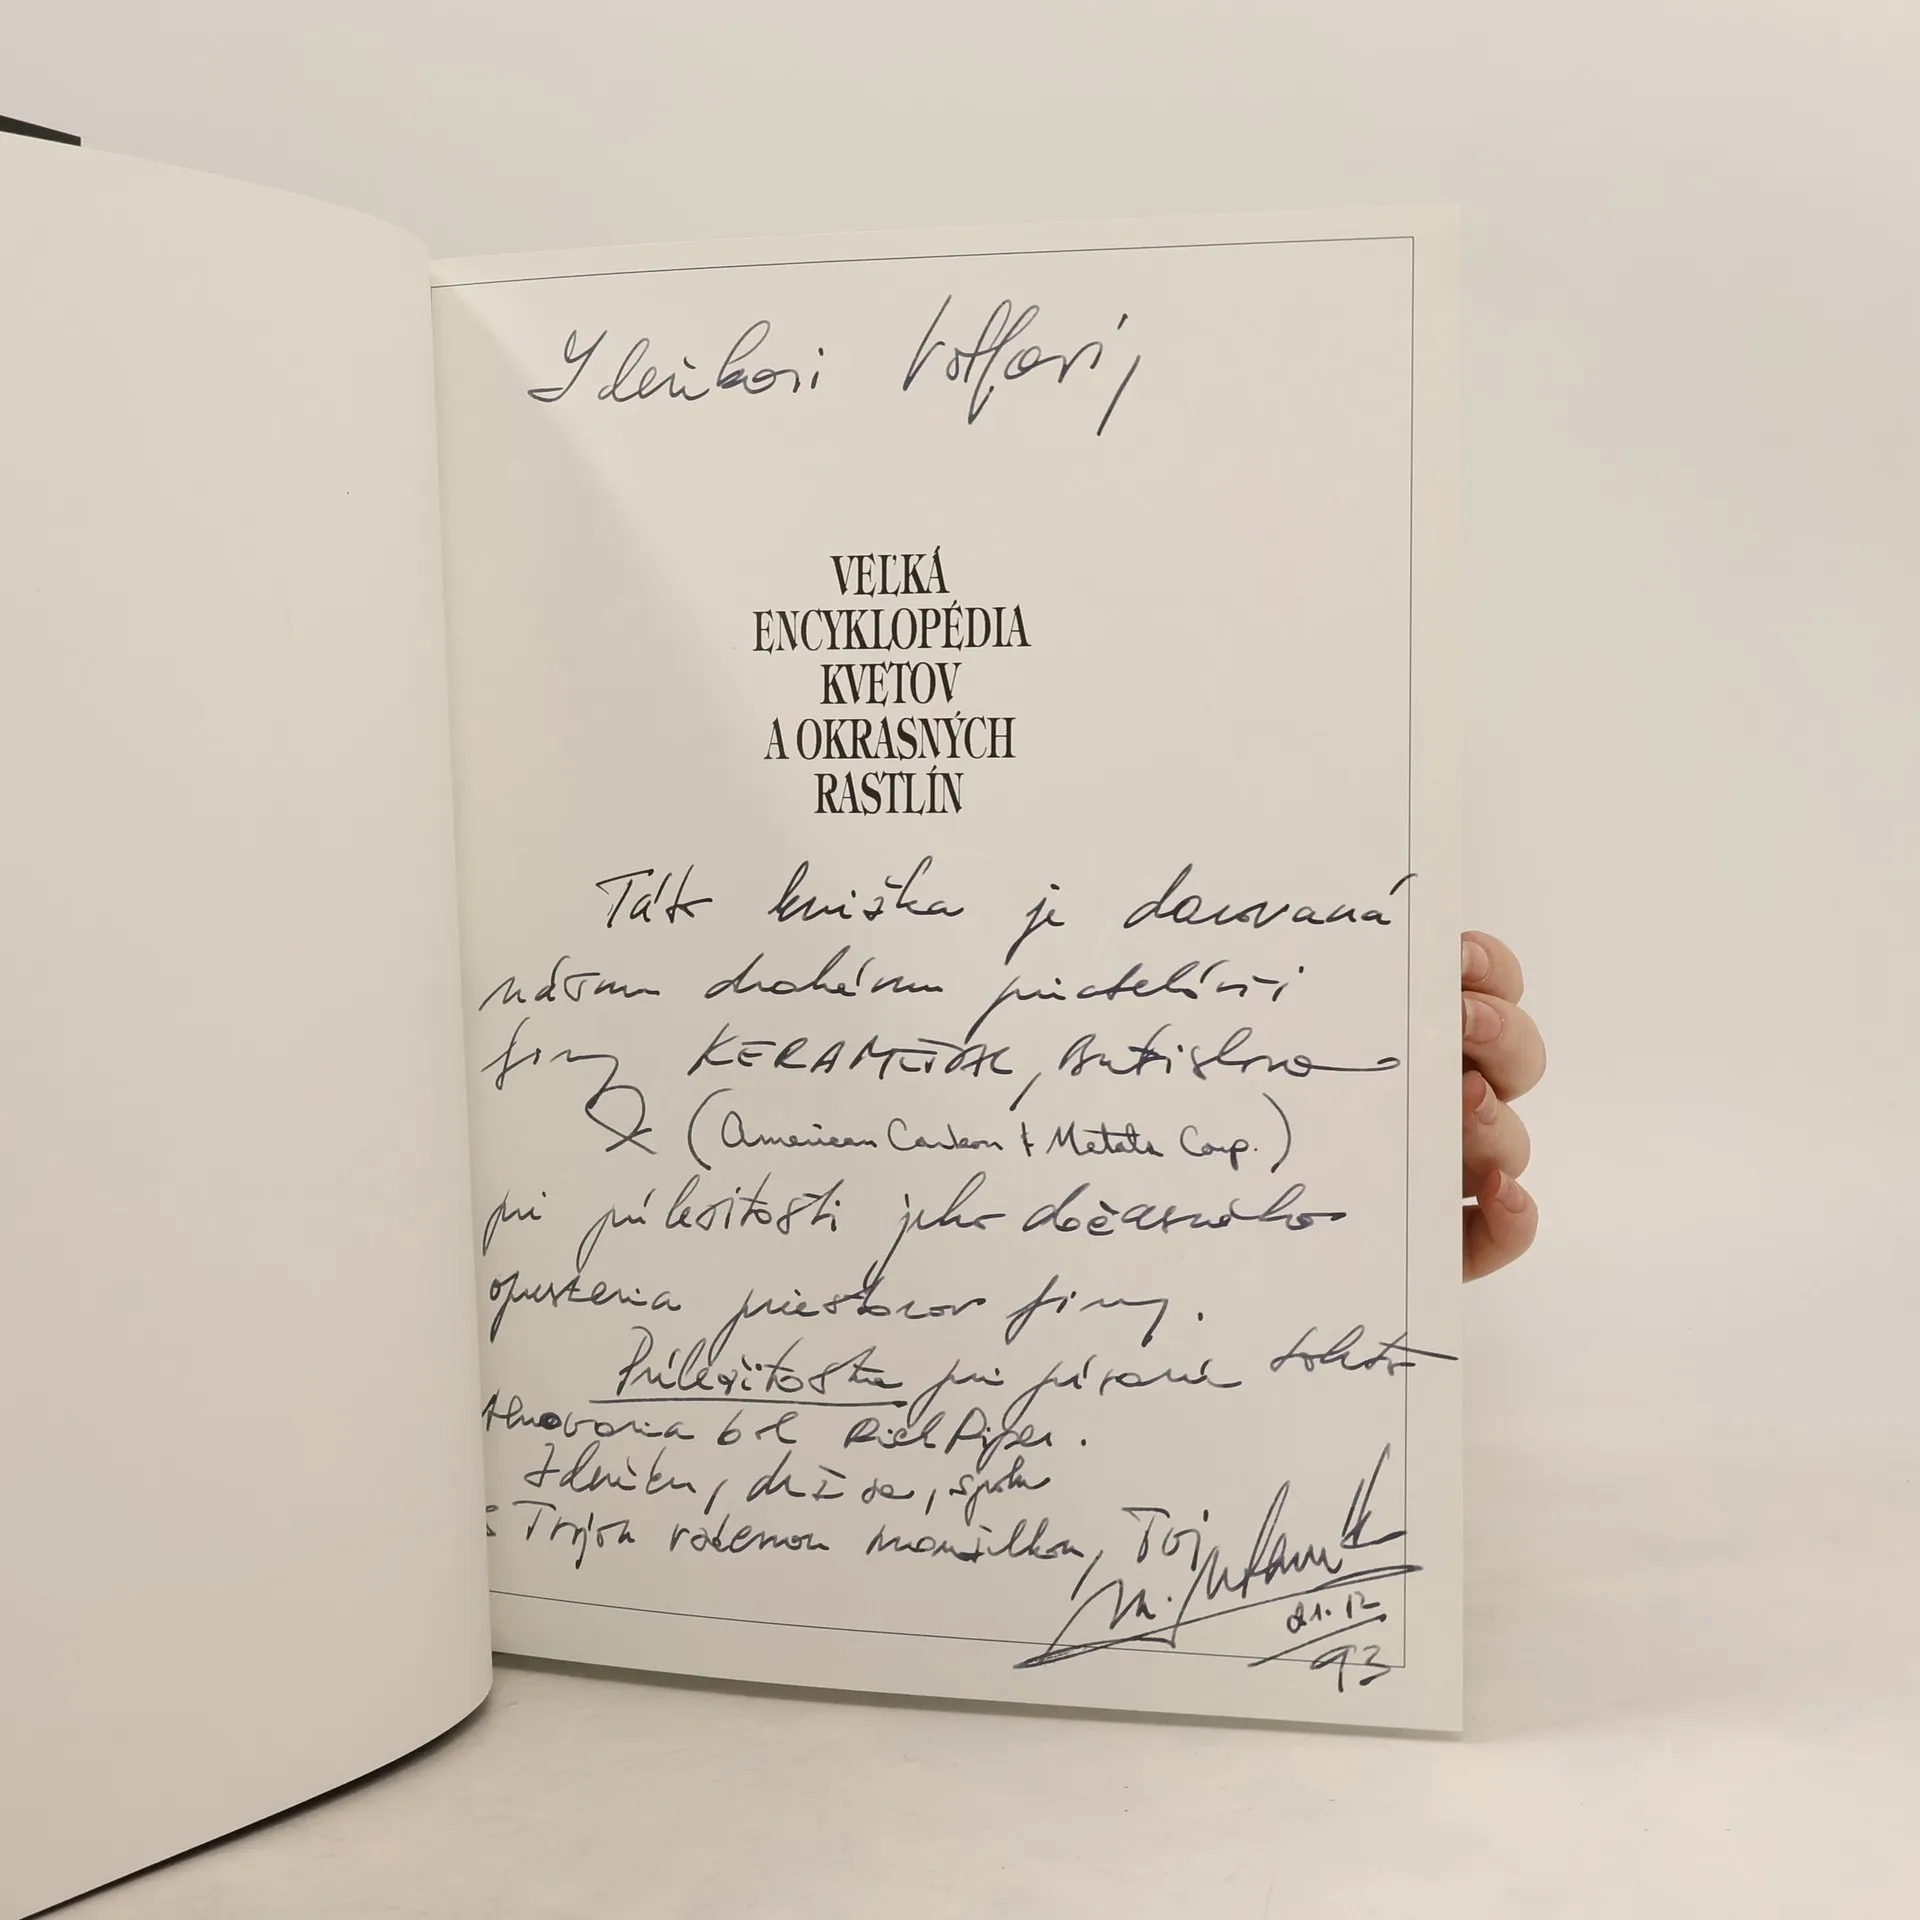 Zdeňkovi
VEĽKÁ
ENCYKLOPÉDIA
KVETOV
A OKRASNÝCH
RASTLÍN
Táto knižka je darovaná
nášmu drahému priateľovi
firmy KERAMETAL, Bratislava
(American Carbon & Metals Corp.)
pri príležitosti jeho dočasného
opustenia priestorov firmy.
Príležitostne pri písaní tohto
venovania bol Rich Piper.
Zdeňku, drž sa, spolu
s Tvojou váženou manželkou, Tvoj
M.
21.12
93